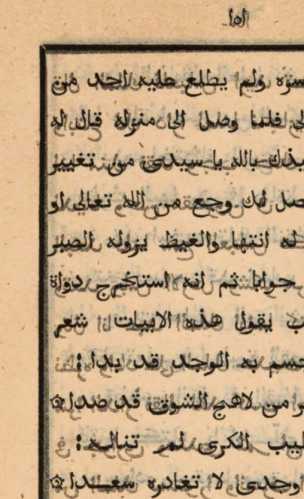 ١٥١
سره ولم يطلع عليه احد من
فلما وصل الى منزله قال له
بالله يا سيدى من تغيير
لك وجع من الله تعالى او
له انتها والغيظ يزوله الصبر
جوابا ثم انه استخرج دواة
يقول هذه الابيات شعر
جسم به الوجد قد بدا
من لاهج الشوق قد صدا
الكرى لم تناله
وجدى لا تغادره سعدا